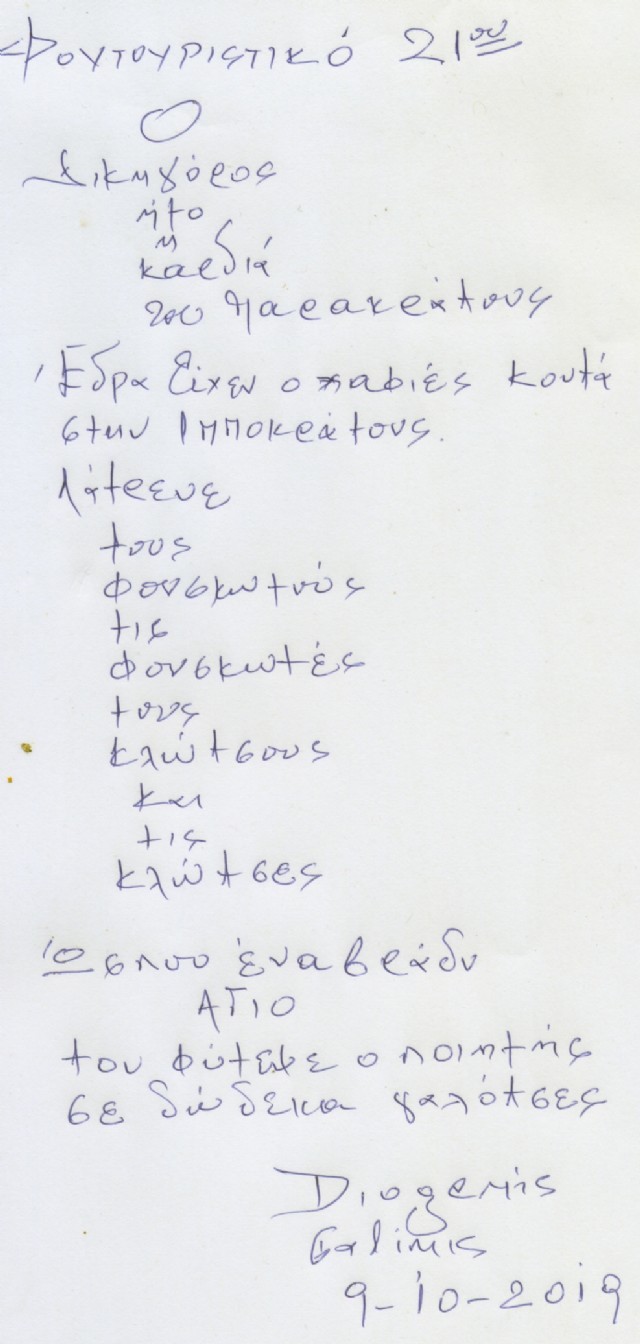 Φουτουριστικό 21ου
Ο
Δικηγόρος
ήτο
η
καρδιά
του παρακράτους
Έδρα είχεν ο μαφιές κουτά
στην Ιπποκράτους.
Λάτρευε
τους
φουσκωτούς
τις
φουσκωτές
τους
κλώτσους
και
τις
κλώτσες
Ώσπου ένα βράδυ
ΑΓΙΟ
τον φύτεψε ο ποιητής
σε δώδεκα γαλότσες
Diogenis
Galinis
9-10-2019